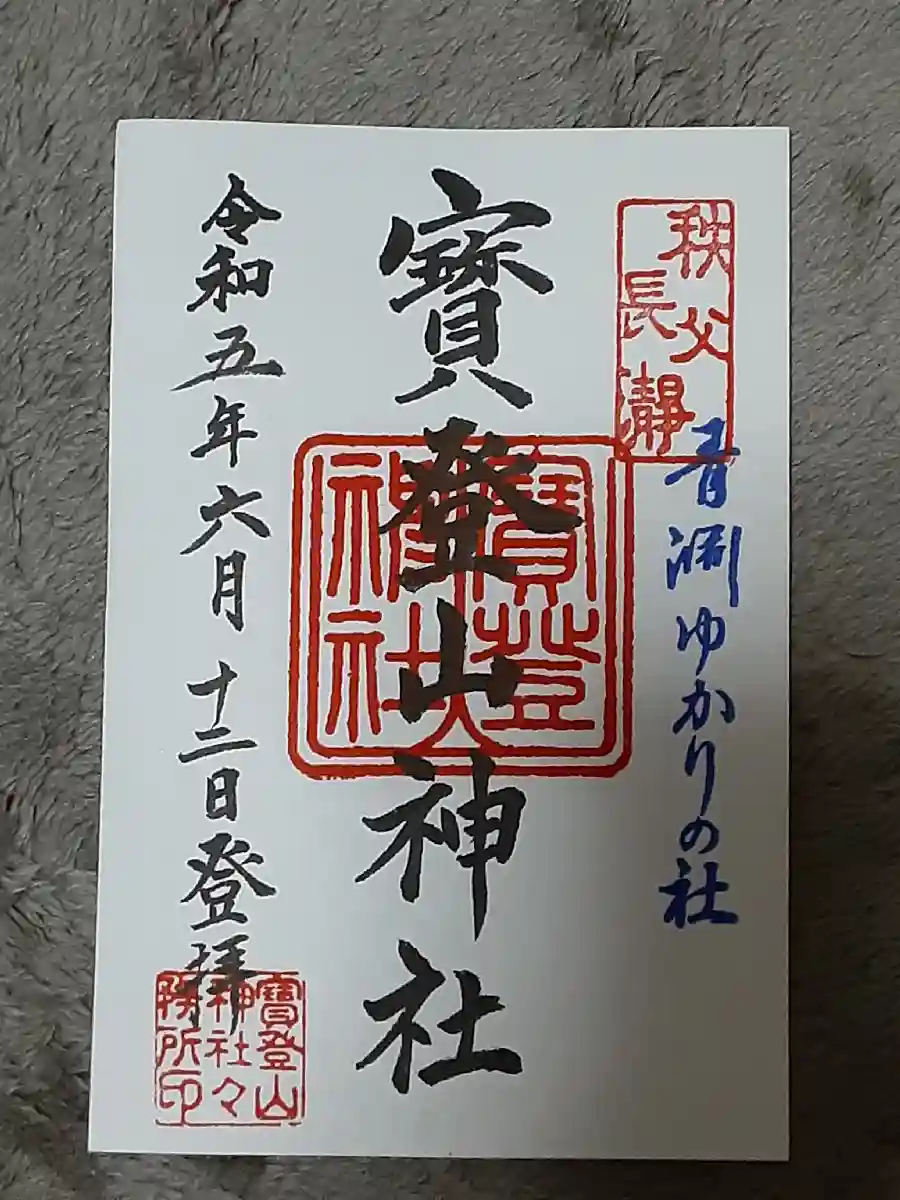 秩父
長瀞
青淵ゆかりの社
寶登山神社
寶登
山
神社
令和五年六月十二日登拝
寶登山
神社々
務所印